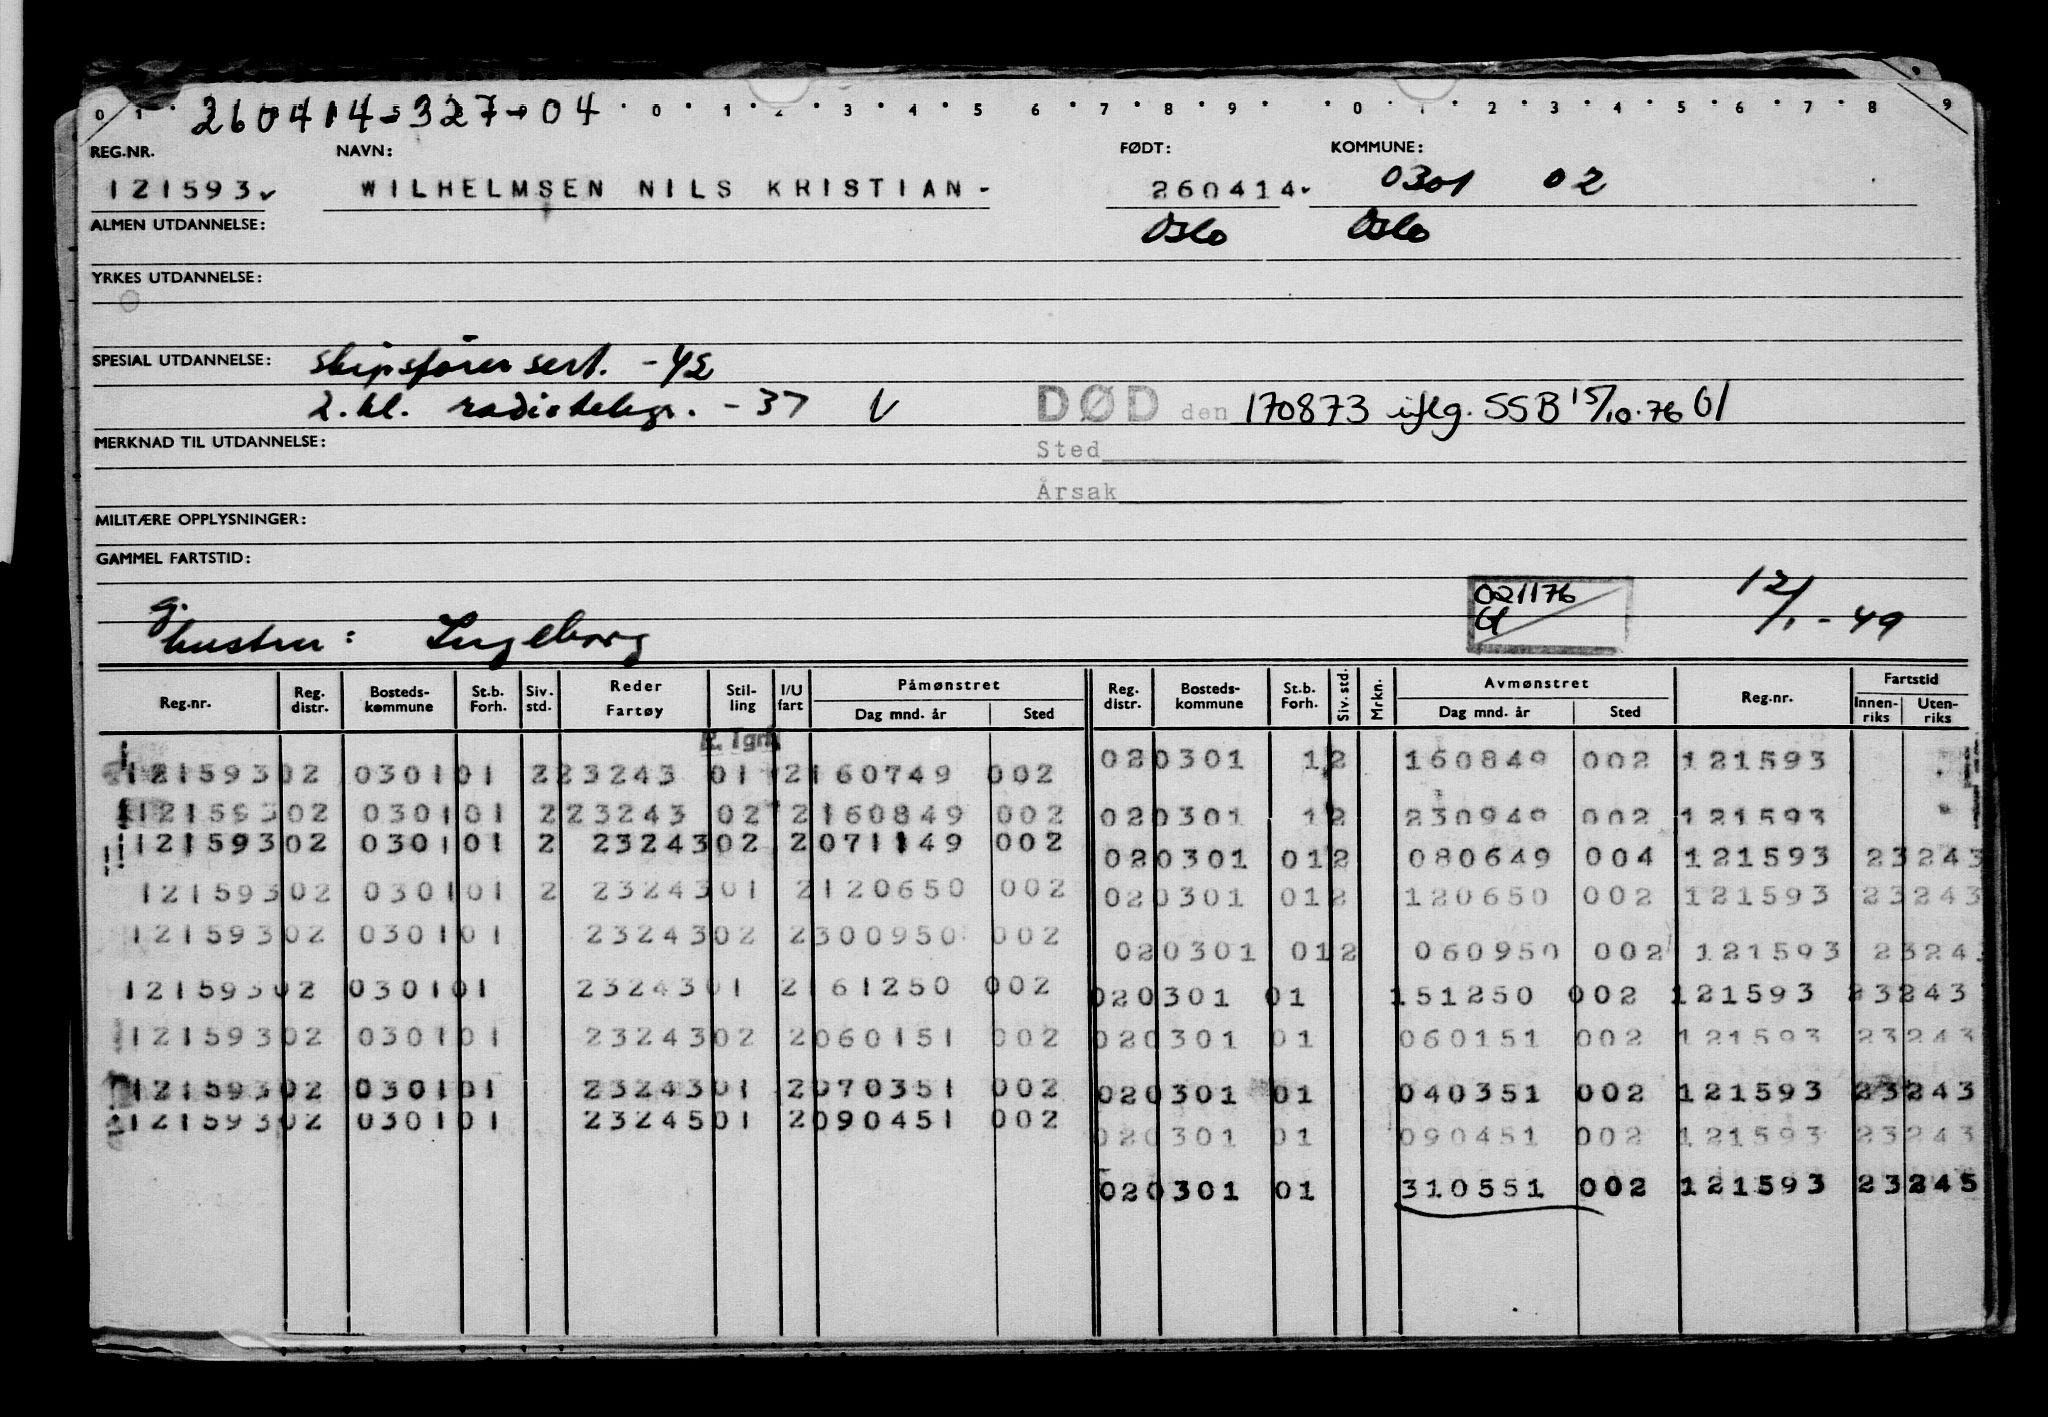 0 1 260414-327-04 0 1 2 3 4 5 6 7 8 9 0 1 2 3 4 5 6 7 8 9
REG.NR. NAVN: FØDT: KOMMUNE:
121593 WILHELMSEN NILS KRISTIAN- 260414 0301 02
ALMEN UTDANNELSE: Oslo Oslo
YRKES UTDANNELSE:
SPESIAL UTDANNELSE: skipsfører sert. -42
2. kl. radiotelegr. -37 V DØD den 170873 iflg. SSB 15/10.76 Gl
MERKNAD TIL UTDANNELSE: Sted
Årsak
MILITÆRE OPPLYSNINGER:
GAMMEL FARTSTID:
021176 12/1-49
Gl
g.
hustru: Ingeborg
Reg.nr. Reg. distr. Bosteds-kommune St.b. Forh. Siv. std. Reder Fartøy Stil-ling I/U fart Påmønstret Dag mnd. år Sted Reg. distr. Bosteds-kommune St.b. Forh. Siv. std. Mrkn. Avmønstret Dag mnd. år Sted Reg.nr. Fartstid Innen-riks Uten-riks
12159302 030101 223243 01 2160749 002 020301 12 160849 002 121593
12159302 030101 223243 02 2160849 002 020301 12 230949 002 121593
12159302 030101 2 2324302 2071149 002 020301 012 080649 004 121593 23243
12159302 030101 2 2324301 2120650 002 020301 012 120650 002 121593 23243
12159302 030101 2324302 2300950 002 020301 012 060950 002 121593 23243
12159302 030101 2324301 2161250 002 020301 01 151250 002 121593 23243
12159302 030101 2324302 2060151 002 020301 01 060151 002 121593 23243
12159302 030101 2324301 2070351 002 020301 01 040351 002 121593 23243
12159302 030101 2324501 2090451 002 020301 01 090451 002 121593 23243
020301 01 310551 002 121593 23245